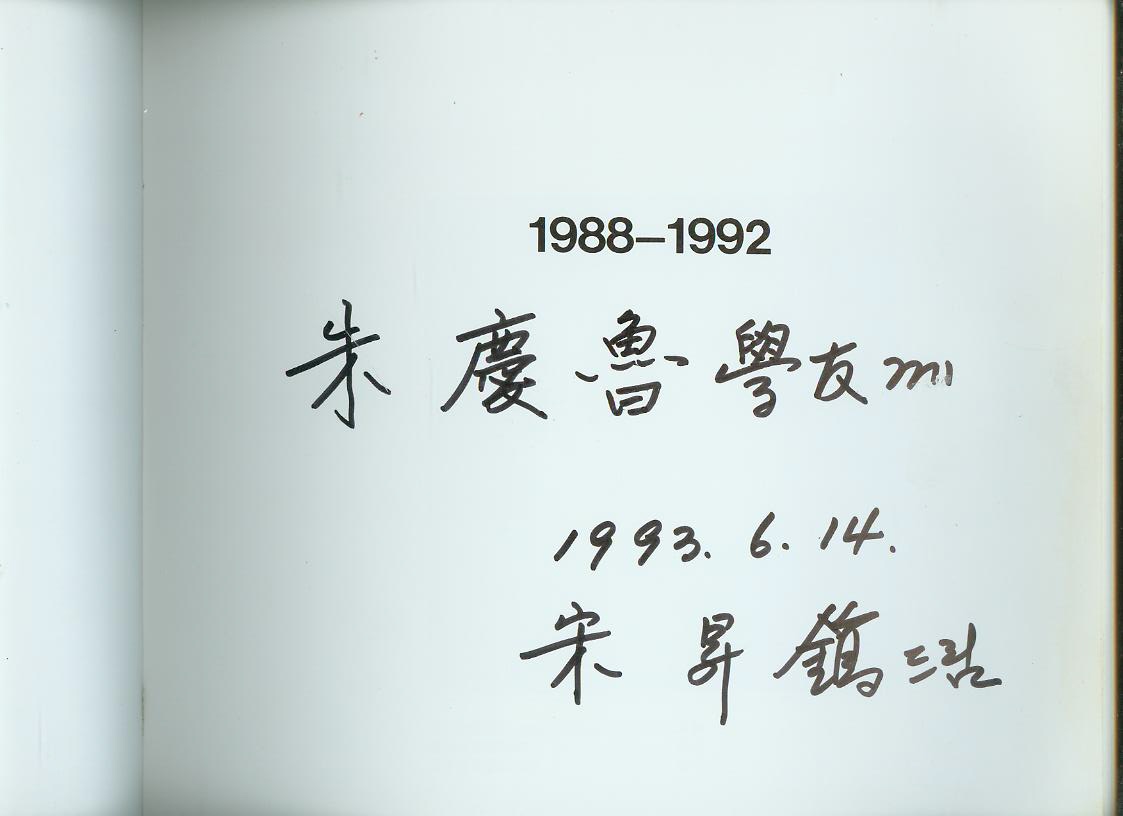 1988–1992
朱慶魯學友
1993. 6. 14.
宋昇鎬 드림